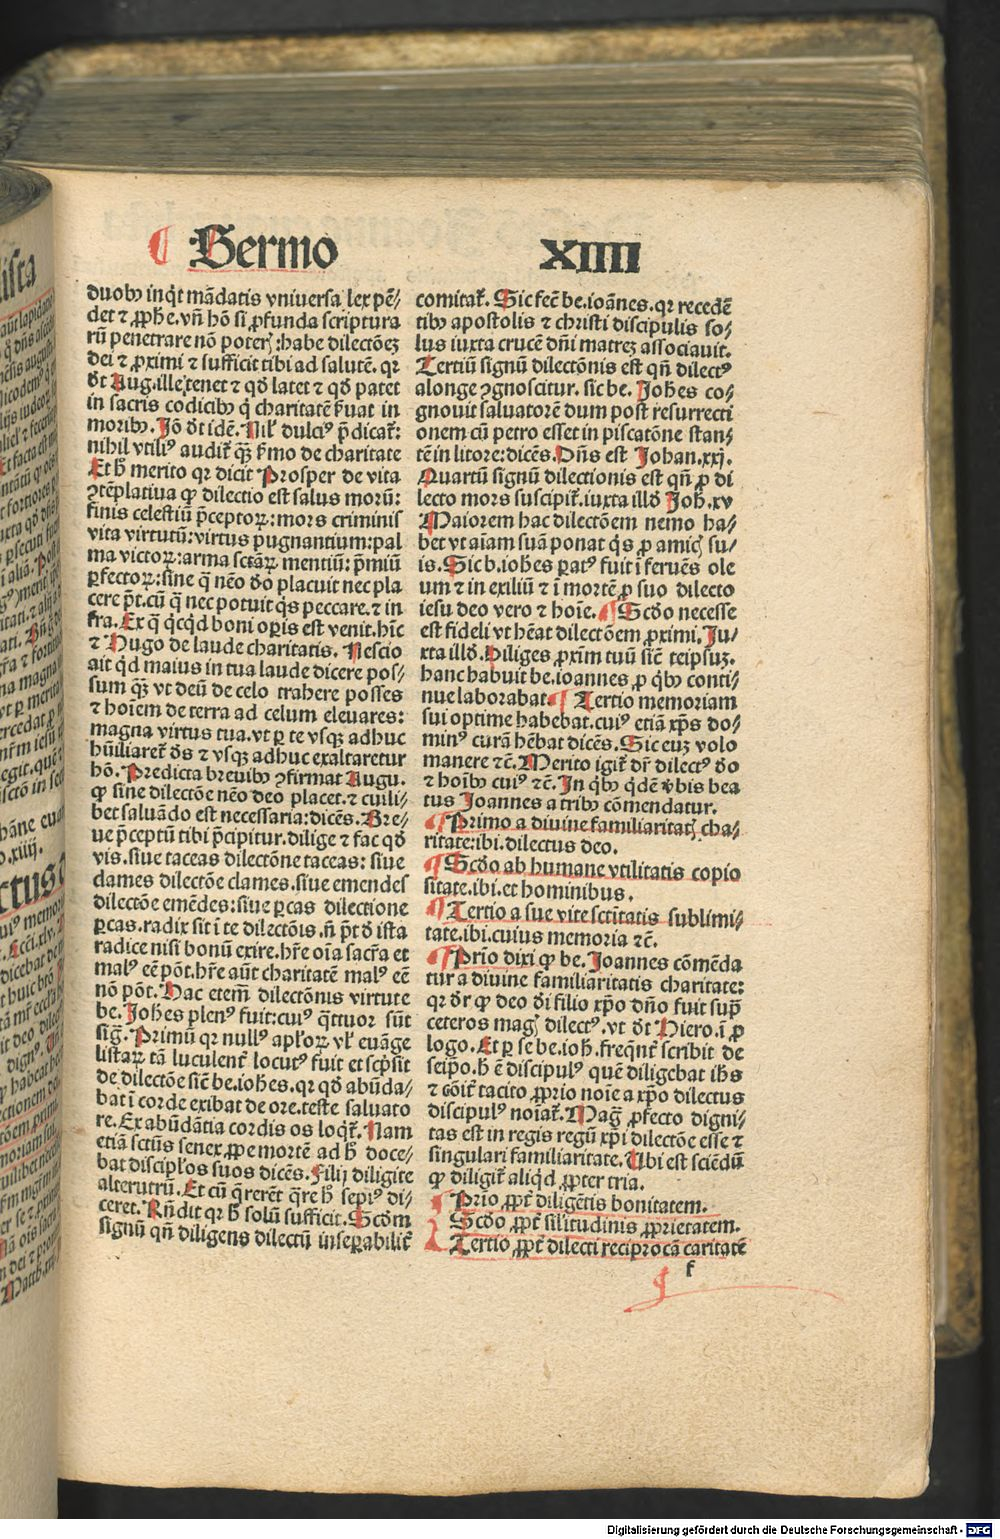 Sermo XIIII
duobꝰ inqͥt mādatis vniuersa lex pē-
det ⁊ ꝓphe. vn̄ hō si ꝓfunda scriptura
rū penetrare nō poterꝭ: habe dilectōeꝫ
dei ⁊ ꝓximi ⁊ sufficit tibi ad salutē. qr
dt Aug. ille tenet ⁊ qd latet ⁊ qd patet
in sacris codicibꝰ qͥ charitatē ẜuat in
moribꝰ. Iō dt idē. Nil dulciꝰ p̄dicat̄:
nihil vtiliꝰ audit̄ qꝫ ẜmo de charitate
Et h̄ merito qr dicit Prosper de vita
ꝯtēplatiua ꝙ dilectio est salus morū:
finis celestiū p̄ceptoꝝ: mors criminis
vita virtutū: virtus pugnantium: pal
ma victoꝝ: arma sctāꝝ mentiū: p̄miū
ꝑfectoꝝ: sine q̄ nēo deo placuit nec pla
cere pt̄. cū q̄ nec potuit qͥs peccare. ⁊ in
fra. Ex q̄ qͥcqͥd boni oꝑis est venit. hīc
⁊ Hugo de laude charitatis. Nescio
ait qͥd maius in tua laude dicere pos-
sum qꝫ vt deū de celo trahere posses
⁊ hoīem de terra ad celum eleuares:
magna virtus tua. vt ꝑ te vsqꝫ adhuc
hūiliaret̄ ds ⁊ vsqꝫ adhuc exaltaretur
hō. Predicta breuibꝰ ꝯfirmat Augu.
ꝙ sine dilectōe nēo deo placet. ⁊ cuili-
bet saluādo est necessaria: dicēs. Bre-
ue p̄ceptū tibi p̄cipitur. dilige ⁊ fac qd
vis. siue taceas dilectōne taceas: siue
clames dilectōe clames. siue emendes
dilectōe emēdes: siue ꝑcas dilectione
ꝑcas. radix sit ī te dilectōis. n̄ pt̄ d ista
radice nisi bonū exire. hr̄e oīa sacr̄a et
malꝰ eē pōt. hr̄e aūt charitatē malꝰ eē
nō pōt. Hac etem̄ dilectōnis virtute
be. Johes plenꝰ fuit: cuiꝰ qͣttuor sūt
siḡ. Primū qr nullꝰ apl̓oꝝ vl̓ euāge
listaꝝ tā luculent̄ locutꝰ fuit et scp̓sit
de dilectōe sic̄ be. iohes. qr qd abūda-
bat ī corde exibat de ore. teste saluato
re. Ex abūdātia cordis os loqͥt̄. Nam
etiā sctūs senex ꝓpe mortē ad h̄ doce-
bat discipl̓os suos dicēs. Filij diligite
alterutrū. Et cū q̄rerēt q̄re h̄ sepiꝰ di-
ceret. Rn̄dit qr h̄ solū sufficit. Scdm
signū qn̄ diligens dilectū insepabilit̄
comitat̄. Sic fec̄ be. ioānes. qr recedē
tibꝰ apostolis ⁊ christi discipulis so-
lus iuxta crucē dn̄i matreꝫ associauit.
Tertiū signū dilectōnis est qn̄ dilectꝰ
alonge ꝯgnoscitur. sic be. Johes co-
gnouit saluatorē dum post resurrecti
onem cū petro esset in piscatōne stan-
tē in litore: dicēs. Dn̄s est Johan. xxj.
Quartū signū dilectionis est qn̄ ꝓ di
lecto mors suscipit̄. iuxta illd Joh. xv
Maiorem hac dilectōem nemo ha-
bet vt aīam suā ponat qͥs ꝓ amicꝭ su-
is. Sic b. iohes ꝑatꝰ fuit ī feruēs ole
um ⁊ in exiliū ⁊ ī mortē ꝓ suo dilecto
iesu deo vero ⁊ hoīe. ¶ Scdo necesse
est fideli vt hēat dilectōem ꝓximi. Ju-
xta illd. Diliges ꝓxīm tuū sic̄ teipsuꝫ.
hanc habuit be. ioannes ꝓ qͥbꝰ conti-
nue laborabat. ¶ Tertio memoriam
sui optime habebat. cuiꝰ etiā xp̄s do-
minꝰ curā hēbat dicēs. Sic euꝫ volo
manere ⁊c̄. Merito igit̄ dr̄ dilectꝰ deo
⁊ hoībꝰ cuiꝰ ⁊c̄. In qͥbꝰ qͥdē v̓bis bea
tus Joannes a tribꝰ cōmendatur.
¶ Primo a diuine familiaritatꝭ cha-
ritate: ibi. dilectus deo.
¶ Scdo ab humane vtilitatis copio
sitate. ibi. et hominibus.
¶ Tertio a sue vite sctitatis sublimi-
tate. ibi. cuius memoria ⁊c̄.
¶ Prīo dixi ꝙ be. Joannes cōmēda
tur a diuine familiaritatis charitate:
qr dr̄ ꝙ deo dī filio xp̄o dn̄o fuit sup̄
ceteros magꝭ dilectꝰ. vt dt Hiero. ī ꝓ
logo. Et ꝑ se be. ioh. freqn̄t̄ scribit de
seip̄o. h̄ ē discipulꝰ quē diligebat ihs̄
⁊ cōit̄ tacito ꝓprio noīe a xp̄o dilectus
discipulꝰ noīat̄. Maḡ ꝓfecto digni-
tas est in regis regū xp̄i dilectōe esse ⁊
singulari familiaritate. Ubi est sciēdū
ꝙ diligit̄ aliqͥd ꝓpter tria.
¶ Prīo ꝓpt̄ diligētis bonitatem.
Scdo ꝓpt̄ sil̓itudinis ꝓprietatem.
Tertio ꝓpt̄ dilecti reciprocā caritatē
f
Digitalisierung gefördert durch die Deutsche Forschungsgemeinschaft - DFG